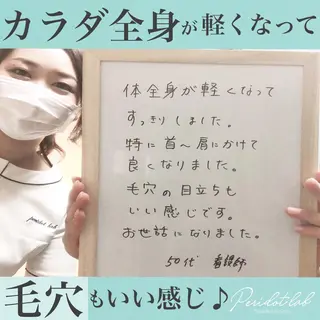 カラダ全身が軽くなって
体全身が軽くなって
すっきりしました。
特に首～肩にかけて
良くなりました。
毛穴の目立ちも
いい感じです。
お世話になりました。
50代 看護師
peridot lab
毛穴もいい感じ♪
Peridot lab